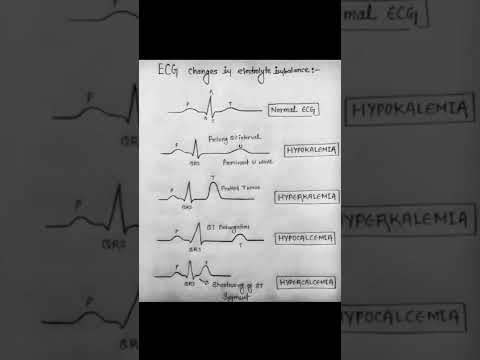 ECG changes in electrolyte imbalance:-
P R T
Q S
Normal ECG
Prolong QU interval
P U
QRS Prominent U wave
HYPOKALEMIA
P T Peaked T wave
QRS
HYPERKALEMIA
P QT Prolongation
QRS T
HYPOCALCEMIA
P T
QRS Shortning of ST
Segment
HYPERCALCEMIA
P
QRS
mal ECG
HYPOKALEMIA
HYPERKALEMIA
HYPOCALCEMIA